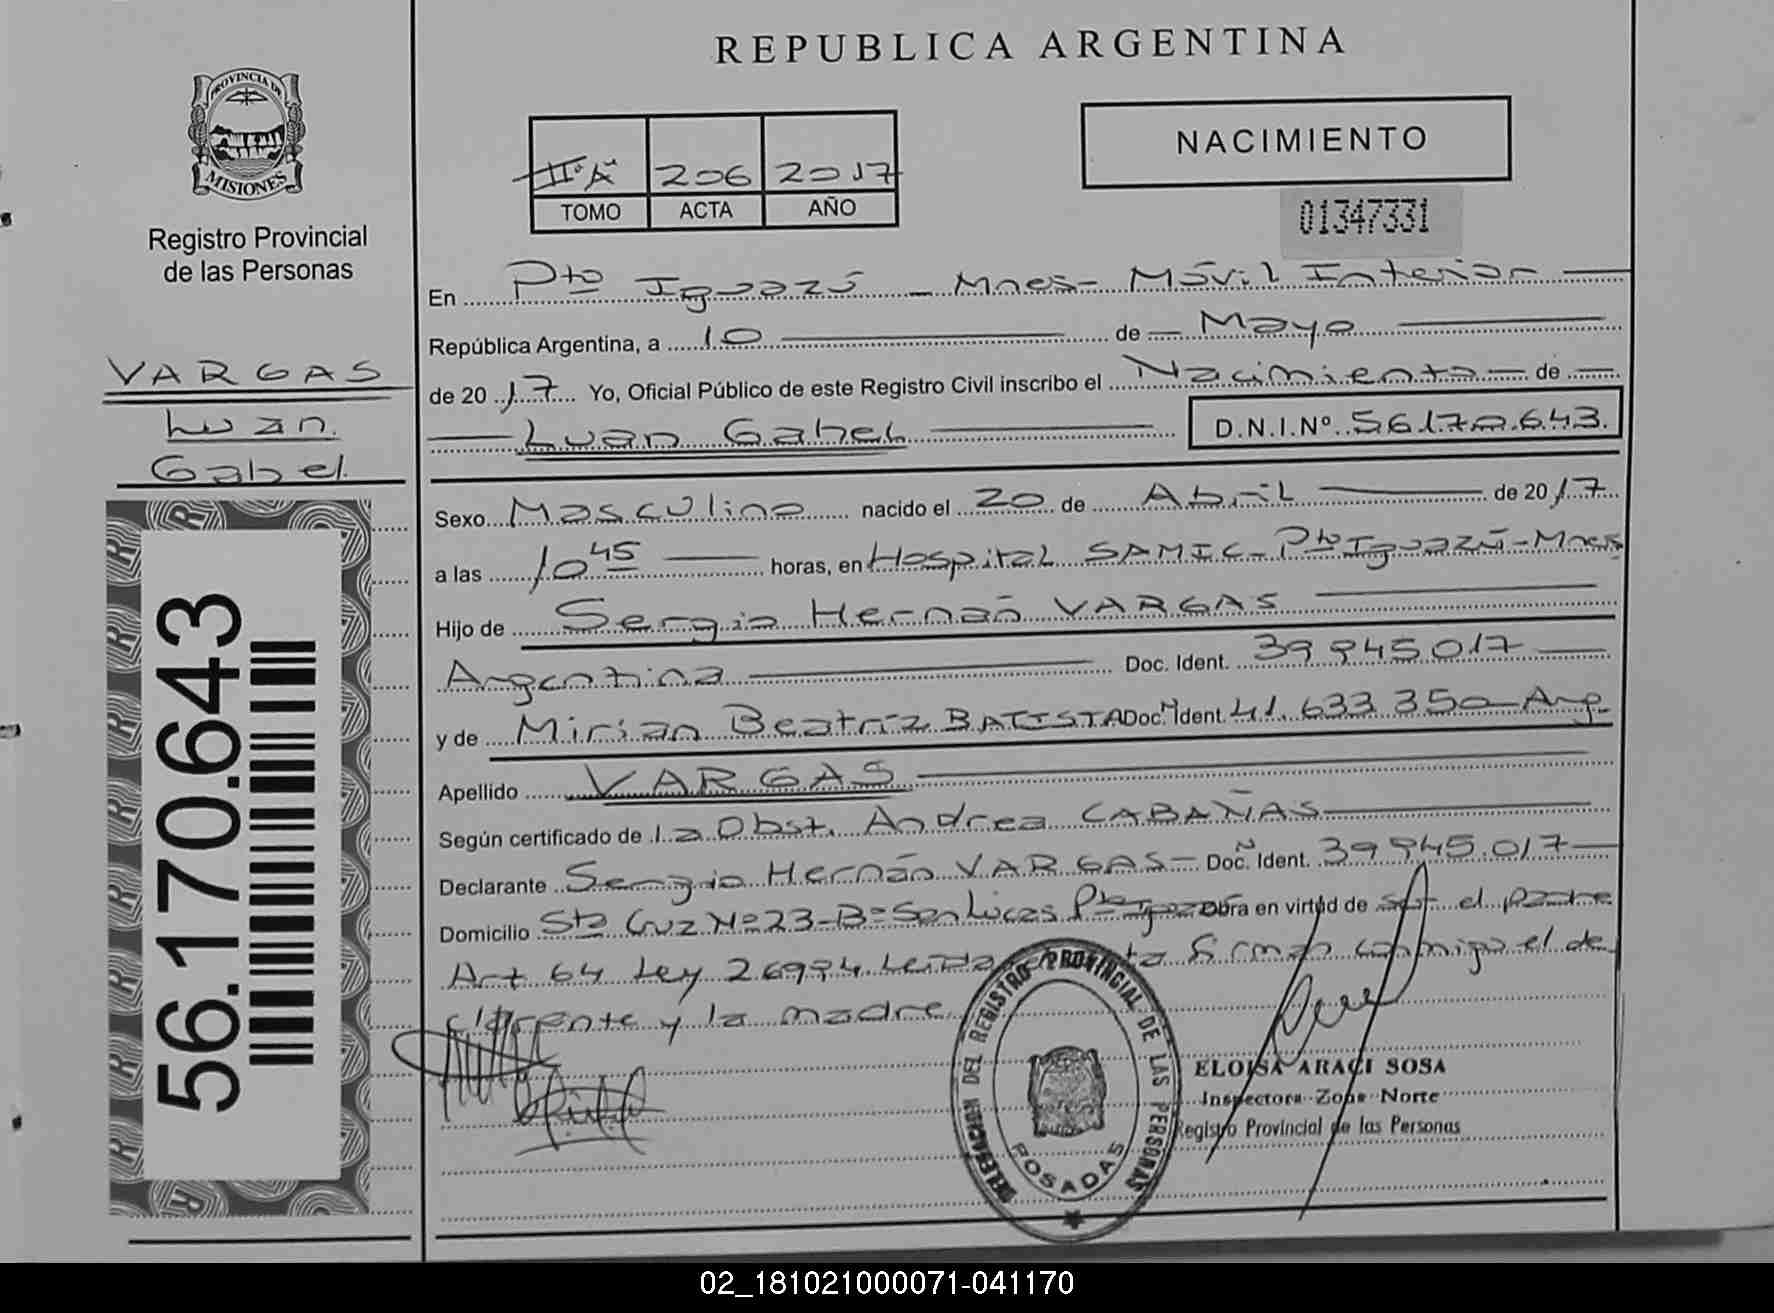 REPUBLICA ARGENTINA
PROVINCIA DE
MISIONES
Registro Provincial
de las Personas
IIº A 206 2017
TOMO ACTA AÑO
NACIMIENTO
01347331
VARGAS
Luan
Gabel
56.170.643
En Pto Iguazú - Mnes - Móvil Interior
República Argentina, a 10 de Mayo
de 2017 Yo, Oficial Público de este Registro Civil inscribo el Nacimiento de
Luan Gabel D.N.I.Nº 56.170.643.
Sexo Masculino nacido el 20 de Abril de 2017
a las 10 45 horas, en Hospital SAMIC - Pto Iguazú - Mnes
Hijo de Sergio Hernán VARGAS
Argentina Doc. Ident. 39 945 017
y de Mirian Beatriz BATISTA Doc. Ident. 41.633 350 - Arg.
Apellido VARGAS
Según certificado de la Obst. Andrea CABAÑAS
Declarante Sergio Hernán VARGAS - Doc. Ident. 39 945.017
Domicilio Sta Cruz Nº 23 - Bº San Lucas Pto Iguazú Obra en virtud de ser el padre
Art 64 Ley 26994 Leída acta firman conmigo el de
clarente y la madre
DELEGACION DEL REGISTRO PROVINCIAL DE LAS PERSONAS
POSADAS
ELOISA ARACI SOSA
Inspectora Zona Norte
Registro Provincial de las Personas
02_181021000071-041170